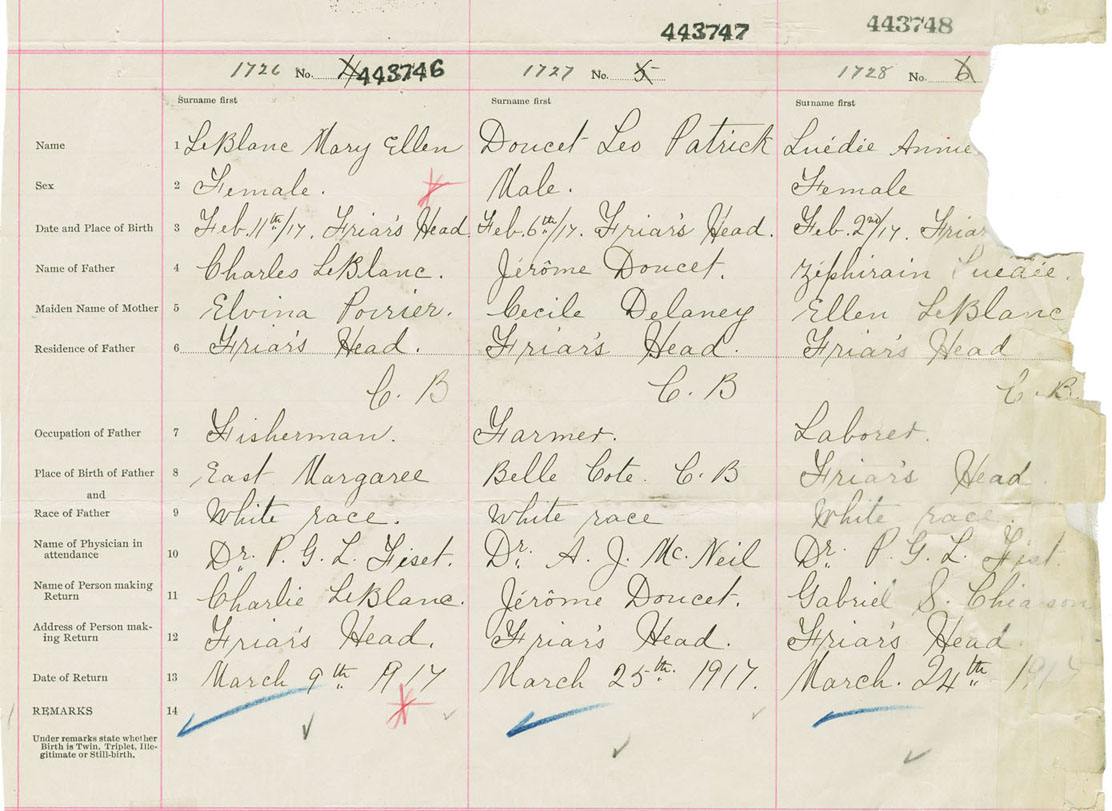 443747 443748
1726 No. 4 443746 1727 No. 5 1728 No. 6
Surname first Surname first Surname first
Name 1 LeBlanc Mary Ellen Doucet Leo Patrick Luédée Annie
Sex 2 Female. Male. Female
Date and Place of Birth 3 Feb. 11th/17. Friar's Head Feb. 6th/17. Friar's Head. Feb. 2nd/17. Friar
Name of Father 4 Charles LeBlanc. Jérôme Doucet. Zéphirain Luédée.
Maiden Name of Mother 5 Elvina Poirier. Cecile Delaney Ellen LeBlanc
Residence of Father 6 Friar's Head. Friar's Head. Friar's Head
C. B C. B C. B.
Occupation of Father 7 Fisherman. Farmer. Laborer.
Place of Birth of Father 8 East Margaree Belle Cote. C. B Friar's Head.
and
Race of Father 9 White race. White race White race.
Name of Physician in
attendance 10 Dr. P. G. L. Fiset. Dr. A. J. Mc. Neil Dr. P. G. L. Fist.
Name of Person making
Return 11 Charlie LeBlanc. Jérôme Doucet. Gabriel S. Chiasson
Address of Person mak-
ing Return 12 Friar's Head. Friar's Head. Friar's Head
Date of Return 13 March 9th 1917 March 25th. 1917. March. 24th 1917
REMARKS 14
Under remarks state whether
Birth is Twin, Triplet, Ille-
gitimate or Still-birth.